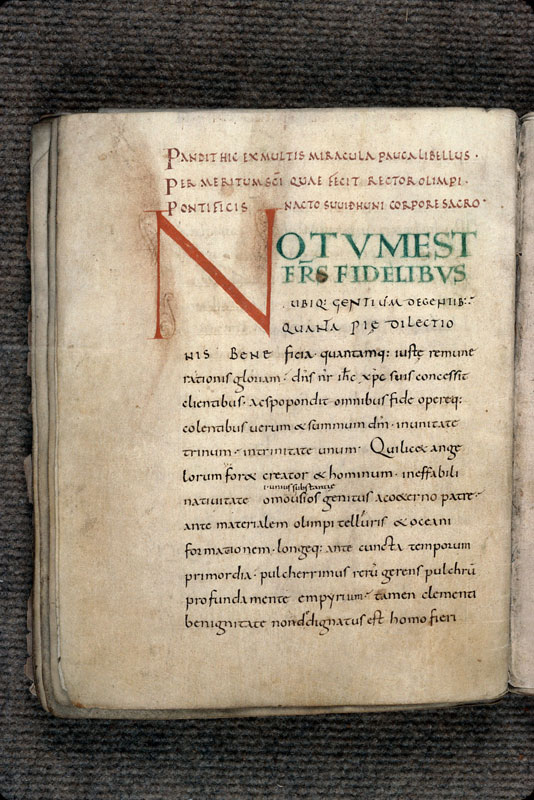 PANDIT HIC EX MULTIS MIRACULA PAUCA LIBELLUS ·
PER MERITUM SC̄I QUAE FECIT RECTOR OLIMPI ·
PONTIFICIS NACTO SUUIÐHUNI CORPORE SACRO ·
NOTVM EST
FR̄S FIDELIBVS
UBIQ: GENTIUM DEGENTIB:
QUANTA PIĘ DILECTIO
NIS BENE ficia · quantamq: iustę remune
rationis gloriam · dn̄s nr̄ ih̄c xp̄c suis concessit
clientibus · ac spopondit omnibus fide opereq:
colentibus uerum & summum dm̄ · in unitate
trinum · in trinitate unum · Qui lic& ange
lorum for& creator & hominum · ineffabili
.i. unius substantie
nativitate omoúsios genitus aco&erno patre ·
ante materialem olimpi telluris & oceani
formationem · longeq: ante cuncta temporum
primordia · pulcherrimus rerū gerens pulchrū
profunda mente empyrium · tamen clementi
benignitate non dedignatus est homo fieri